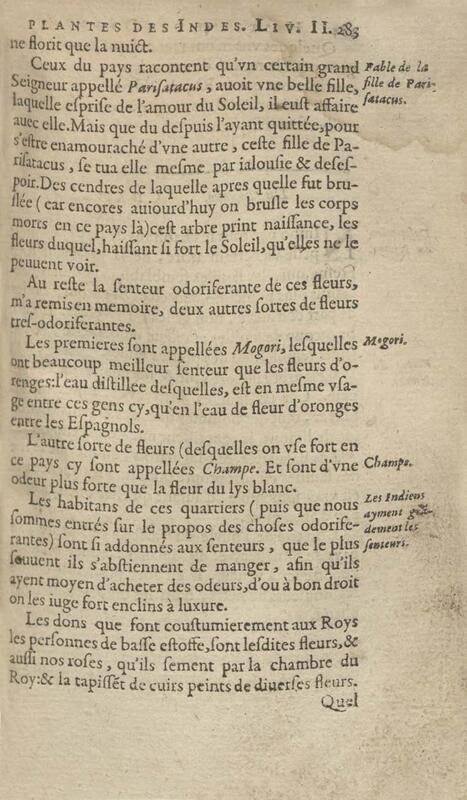 PLANTES DES INDES. LIV. II. 283
ne florit que la nuict.
Ceux du pays racontent qu'vn certain grand
Fable de la
Seigneur appellé Parisatacus, auoit vne belle fille,
fille de Pari-
laquelle esprise de l'amour du Soleil, il eust affaire
satacus.
auec elle. Mais que du despuis l'ayant quittée, pour
s'estre enamouraché d'vne autre, ceste fille de Pa-
risatacus, se tua elle mesme par ialousie & deses-
poir. Des cendres de laquelle apres quelle fut bru-
slée (car encores auiourd'huy on brusle les corps
morts en ce pays là) cest arbre print naissance, les
fleurs duquel, haissant si fort le Soleil, qu'elles ne le
peuuent voir.
Au reste la senteur odoriferante de ces fleurs,
m'a remis en memoire, deux autres sortes de fleurs
tres-odoriferantes.
Les premieres sont appellées Mogori, lesquelles
Mogori.
ont beaucoup meilleur senteur que les fleurs d'o-
renges: l'eau distillee desquelles, est en mesme vsa-
ge entre ces gens cy, qu'en l'eau de fleur d'oronges
entre les Espagnols.
L'autre sorte de fleurs (desquelles on vse fort en
ce pays cy sont appellées Champe. Et sont d'vne
Champe.
odeur plus forte que la fleur du lys blanc.
Les habitans de ces quartiers (puis que nous
Les Indiens
sommes entrés sur le propos des choses odorife-
ayment grā-
rantes) sont si addonnés aux senteurs, que le plus
dement les
souuent ils s'abstiennent de manger, afin qu'ils
senteurs.
ayent moyen d'acheter des odeurs, d'ou à bon droit
on les iuge fort enclins à luxure.
Les dons que font coustumierement aux Roys
les personnes de basse estoffe, sont lesdites fleurs, &
aussi nos roses, qu'ils sement par la chambre du
Roy: & la tapissēt de cuirs peints de diuerses fleurs.
Quel